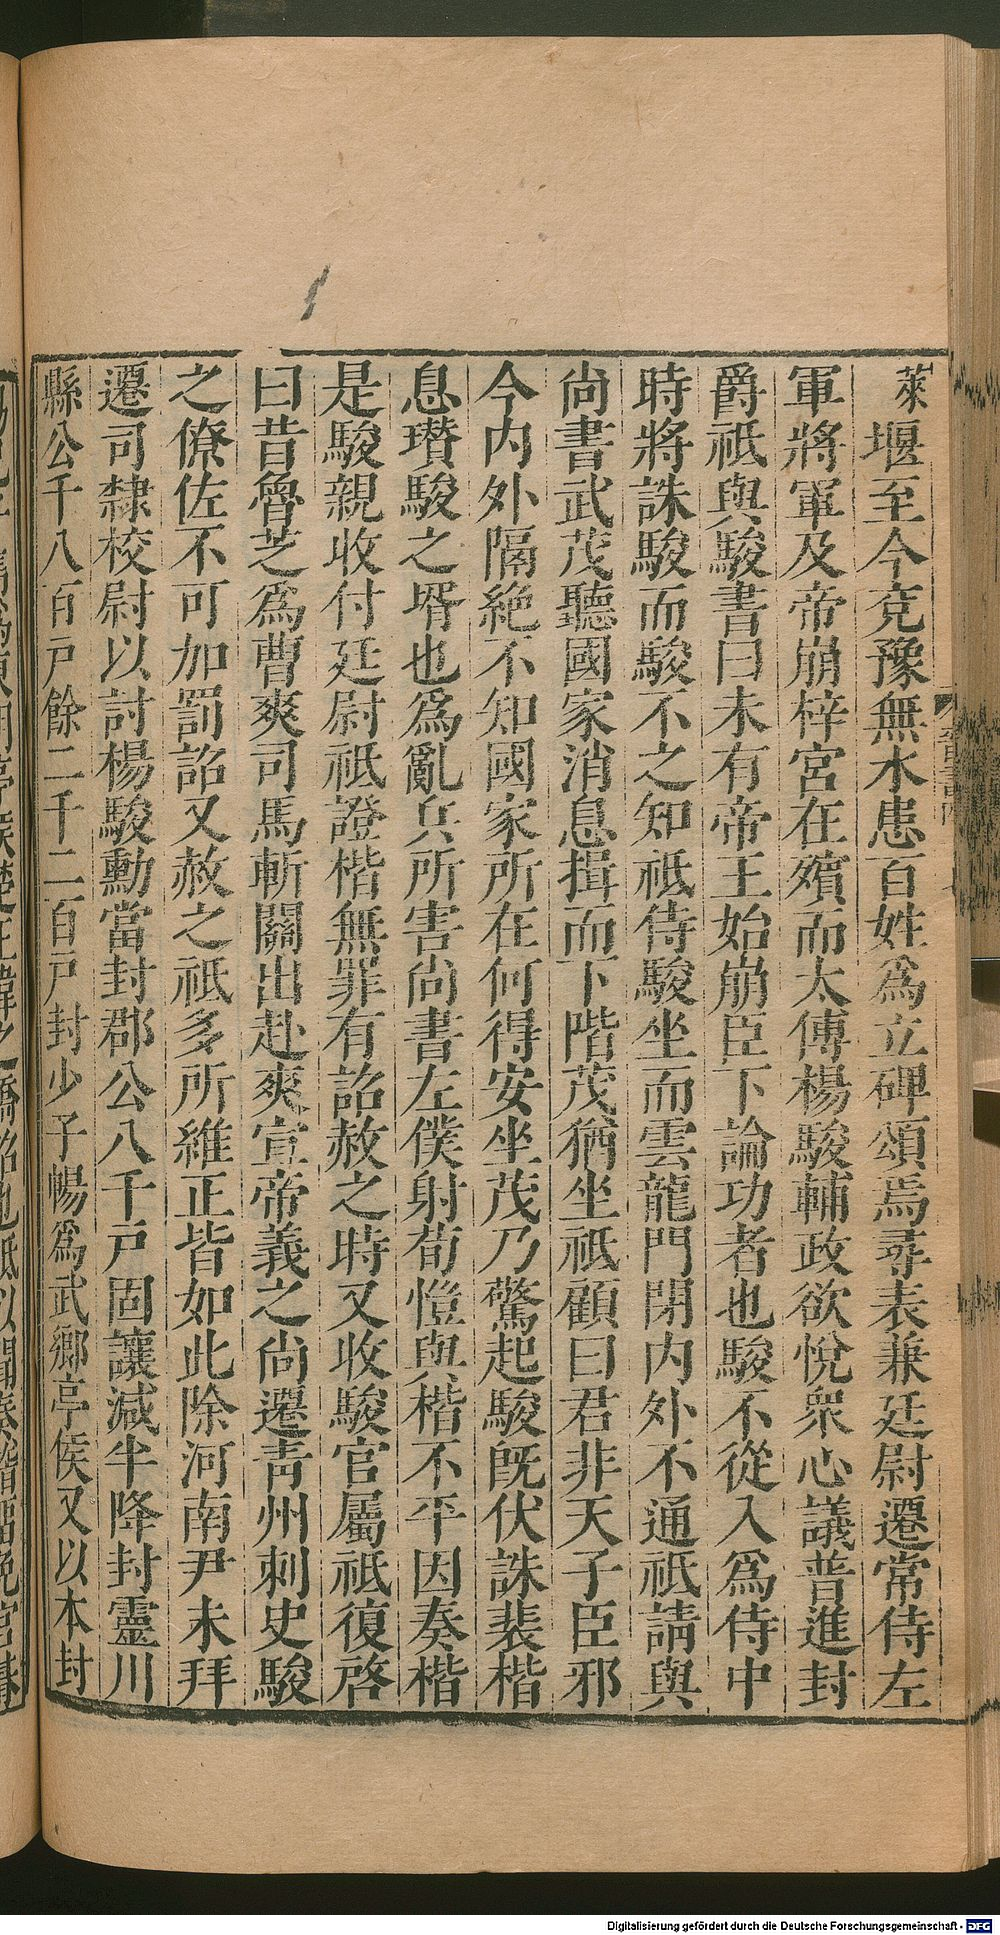 萊堰至今兗豫無水患百姓爲立碑頌焉尋表兼廷尉遷常侍左
軍將軍及帝崩梓宮在殯而太傅楊駿輔政欲悅衆心議普進封
爵祗與駿書曰未有帝王始崩臣下論功者也駿不從入爲侍中
時將誅駿而駿不之知祗侍駿坐而雲龍門閉内外不通祗請與
尚書武茂聽國家消息揖而下階茂猶坐祗顧曰君非天子臣邪
今内外隔絶不知國家所在何得安坐茂乃驚起駿旣伏誅裴楷
息瓚駿之壻也爲亂兵所害尚書左僕射荀愷與楷不平因奏楷
是駿親收付廷尉祗證楷無罪有詔赦之時又收駿官屬祗復啓
曰昔魯芝爲曹爽司馬斬關出赴爽宣帝義之尚遷青州刺史駿
之僚佐不可加罰詔又赦之祗多所維正皆如此除河南尹未拜
遷司隸校尉以討楊駿勳當封郡公八千戸固讓減半降封靈川
縣公千八百戸餘二千二百戸封少子暢爲武鄉亭侯又以本封
Digitalisierung gefördert durch die Deutsche Forschungsgemeinschaft - DFG